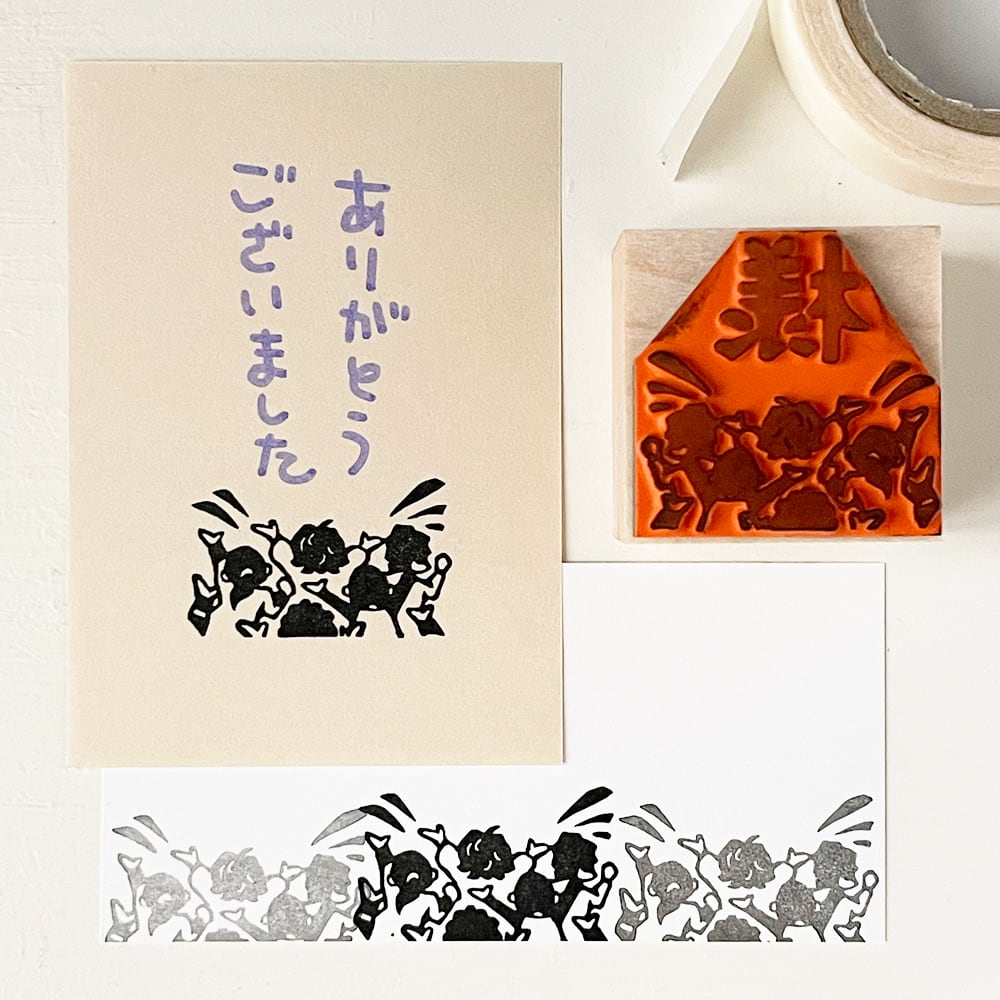 ありがとう
ございました
様